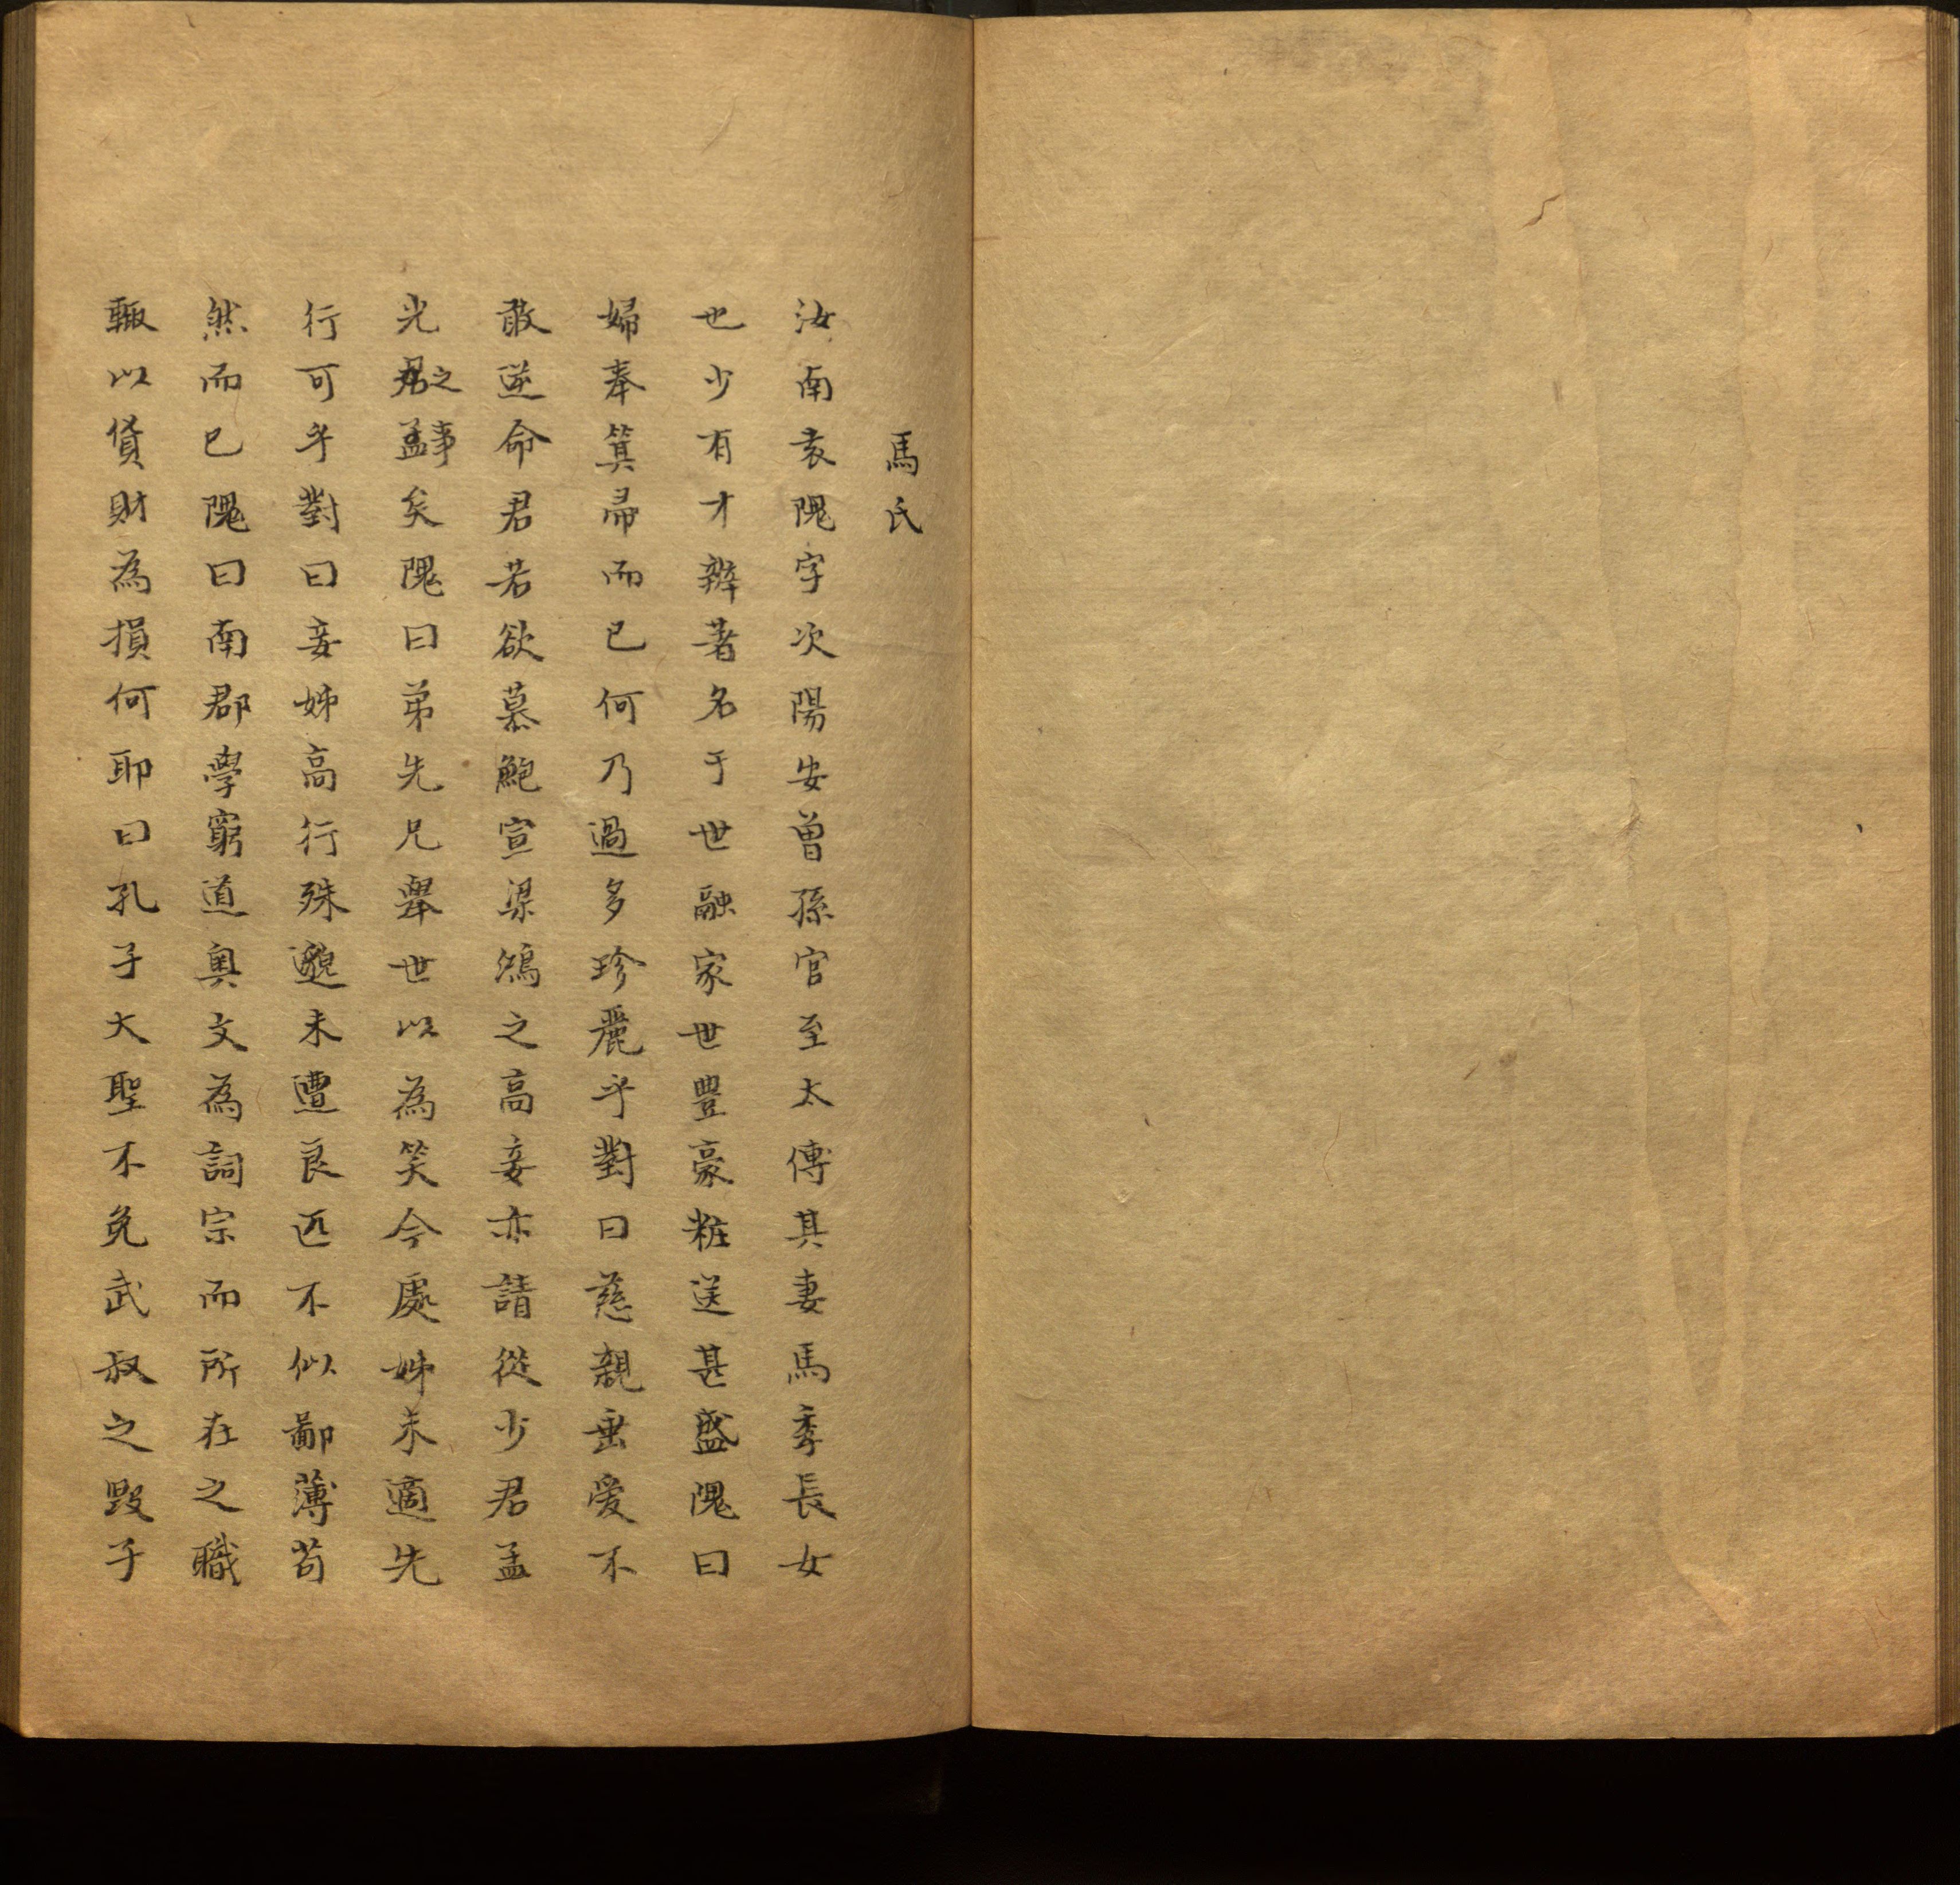 馬氏
汝南袁隗字次陽安曽孫官至太傅其妻馬季長女
也少有才辨著名于世融家世豊豪粧送甚盛隗曰
婦奉箕帚而已何乃過多珍麗乎對曰慈親垂愛不
敢逆命君若欲慕鮑宣梁鴻之高妾亦請從少君孟
光之事矣隗曰弟先兄舉世以為笑今處姊未適先
行可乎對曰妾姊高行殊邈未遭良匹不似鄙薄苟
然而已隗曰南郡學窮道奧文為詞宗而所在之職
輙以貨財為損何耶曰孔子大聖不免武叔之毀子